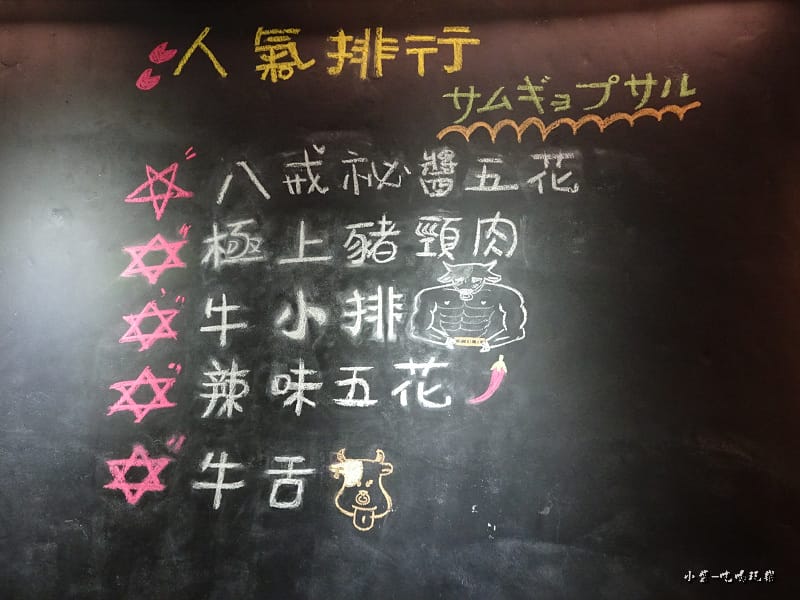 人氣排行
サムギョプサル
八戒祕醬五花
極上豬頸肉
牛小排
辣味五花
牛舌
小螢一吃喝玩樂